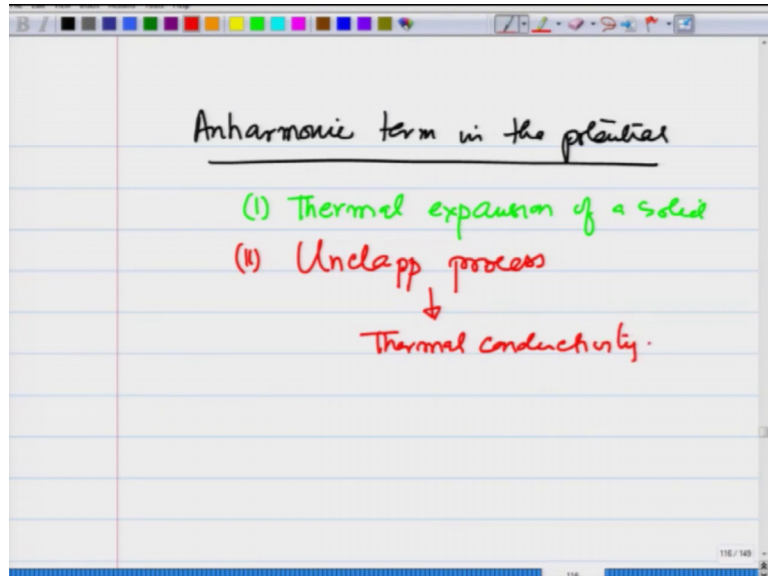 Anharmonic term in the potential
(I) Thermal expansion of a solid
(II) Unclapp process
Thermal conductivity.
116 / 149
116